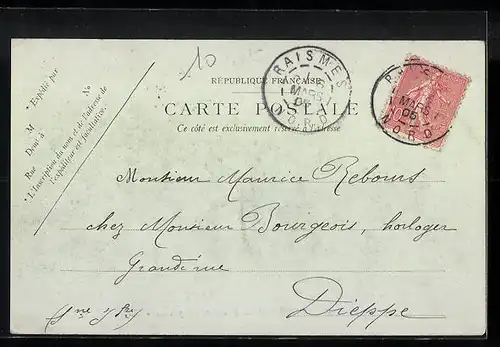 10
RAISMES
1
MARS
06
NORD
RÉPUBLIQUE FRANÇAISE
CARTE POSTALE
Ce côté est exclusivement réservé à l'adresse
* Expédié par
No
M
Demt à
Rue
* L'Inscription du nom et de l'adresse de
l'expéditeur est facultative.
1
MARS
06
NORD
Monsieur Maurice Rebours
chez Monsieur Bourgeois, horloger
Grande rue
Dieppe